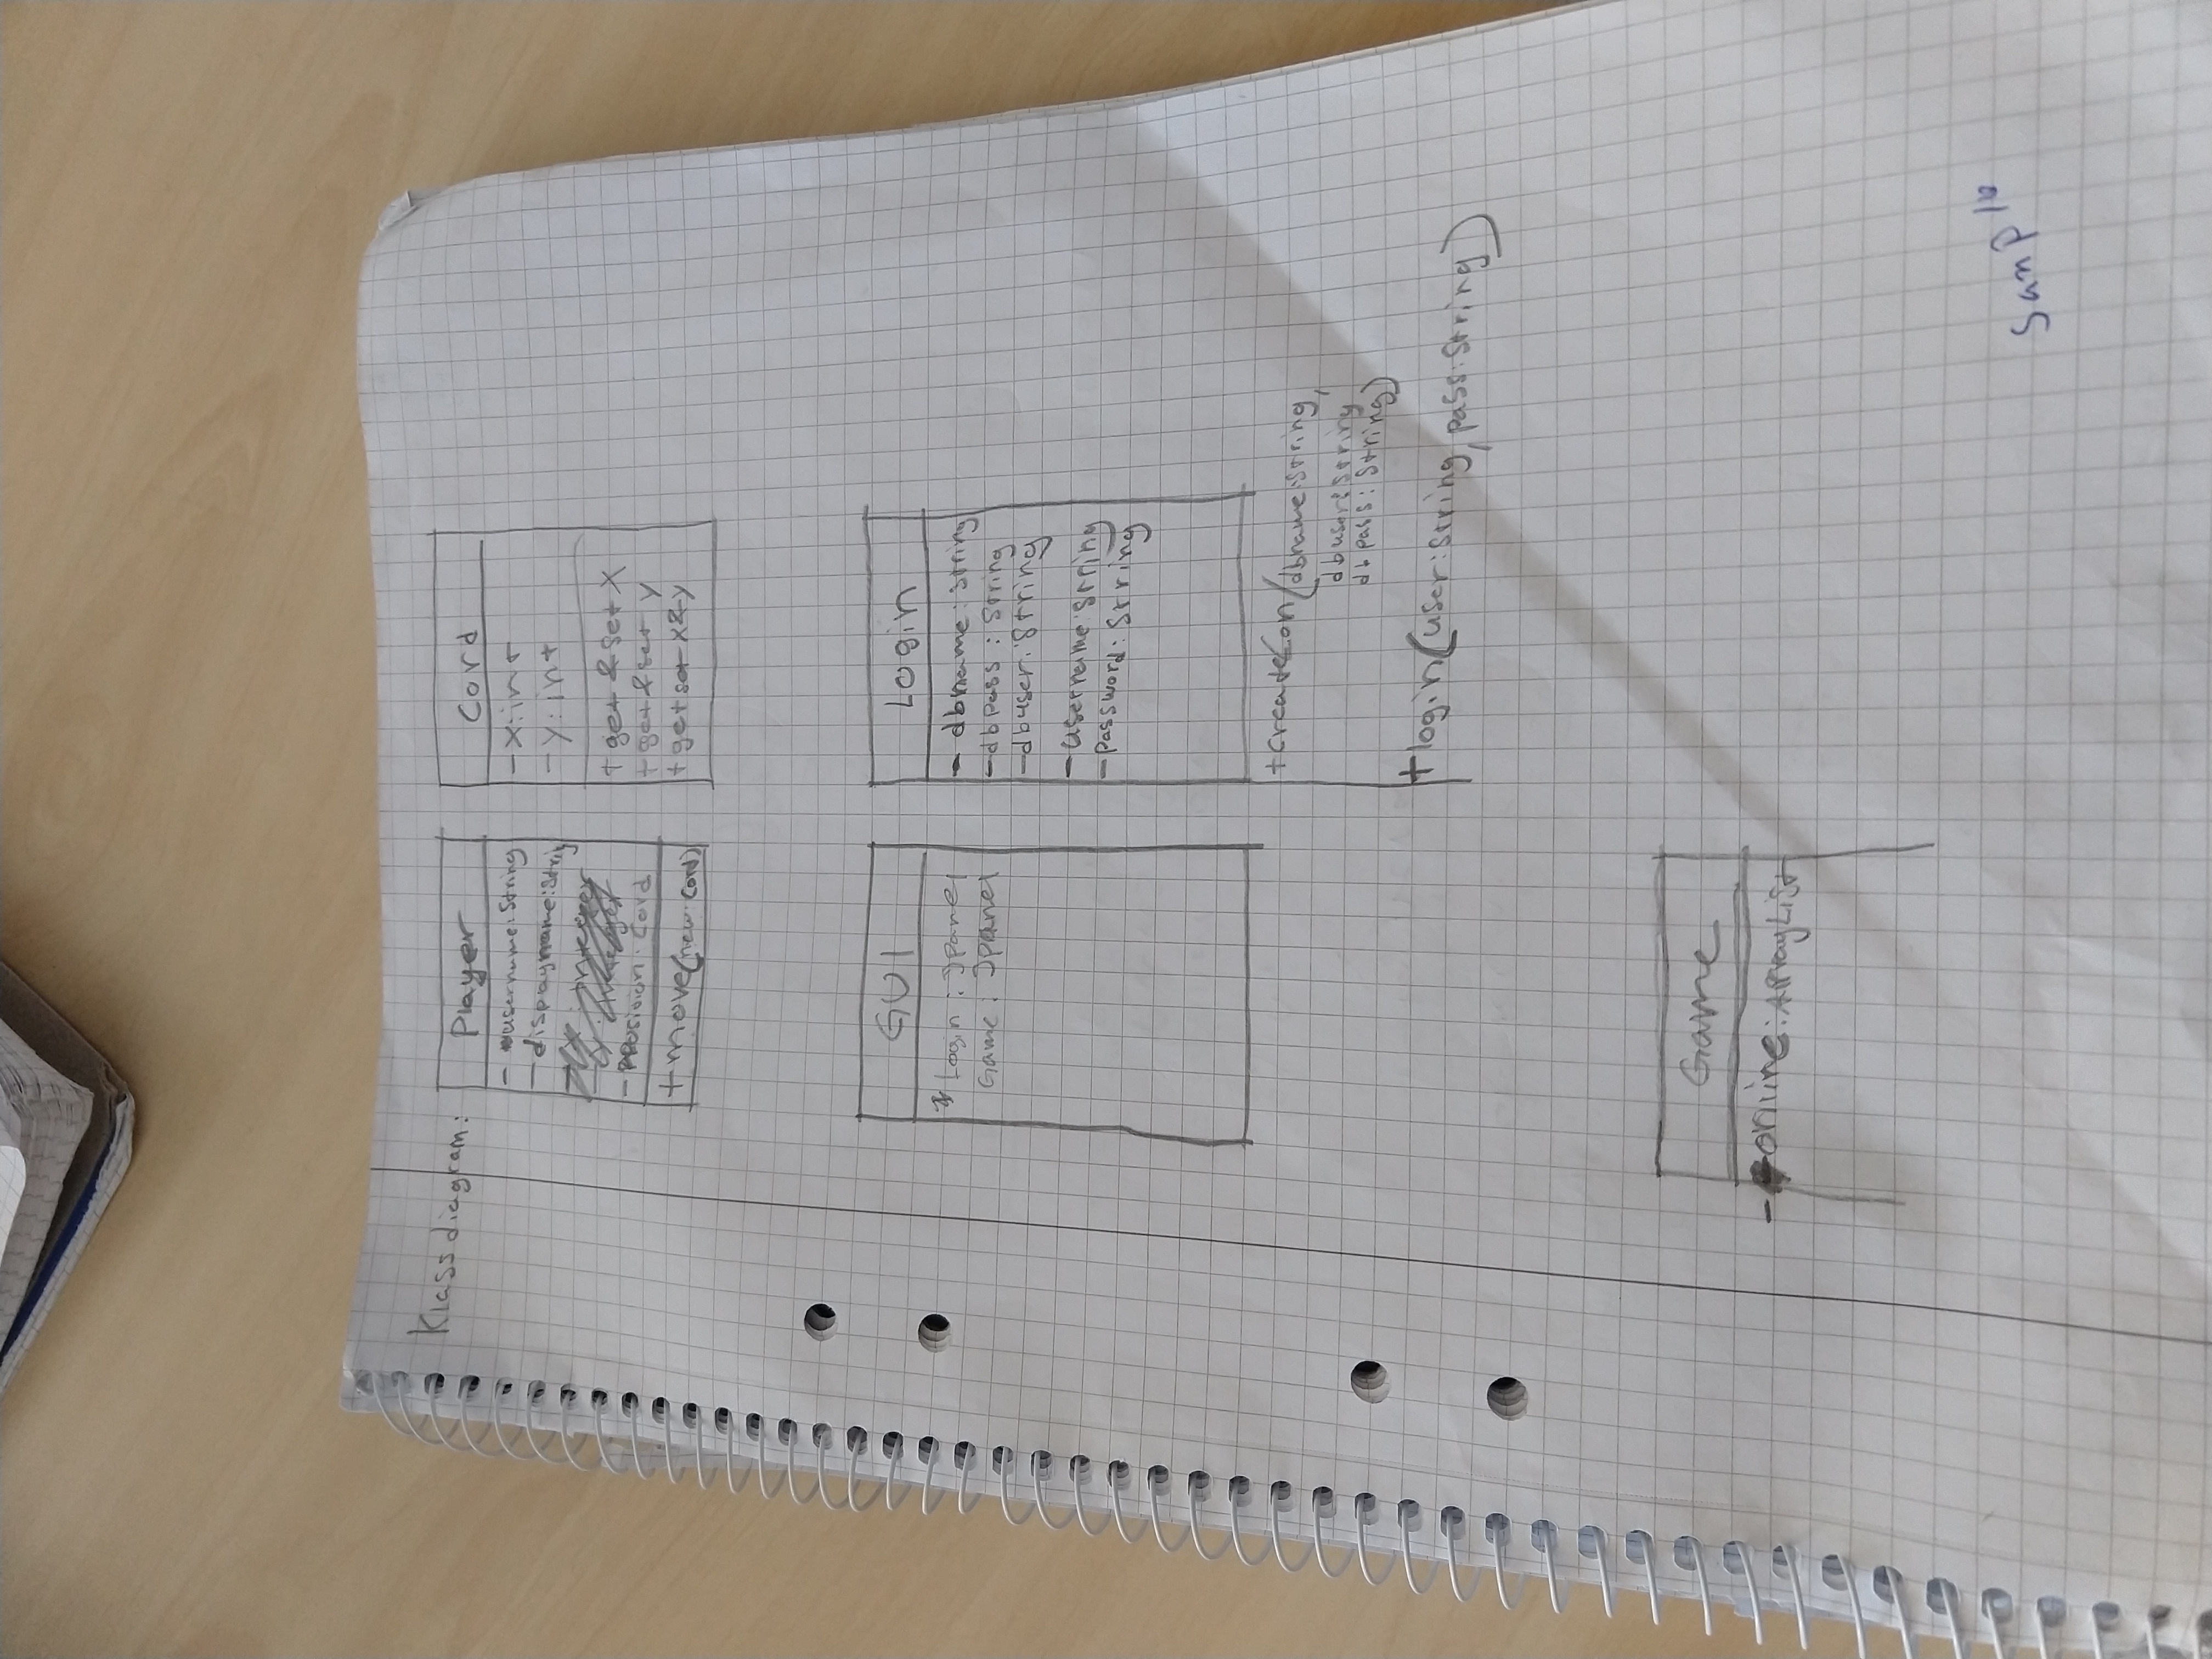 Klassdiagram:
Player
- username: String
- dispayname: String
- Posision: Cord
+ move(new: Cord)
Cord
- x: int
- y: int
+ get & set X
+ get & set y
+ get set x & y
GUI
Login: Jpanel
Game: Jpanel
Login
- dbname: String
- dbpass: String
- dbuser: String
- username: String
- password: String
+ createCon(dbname: String,
dbuser: String
dbpass: String)
+ login(user: String, pass: String)
Game
- online: ArrayList